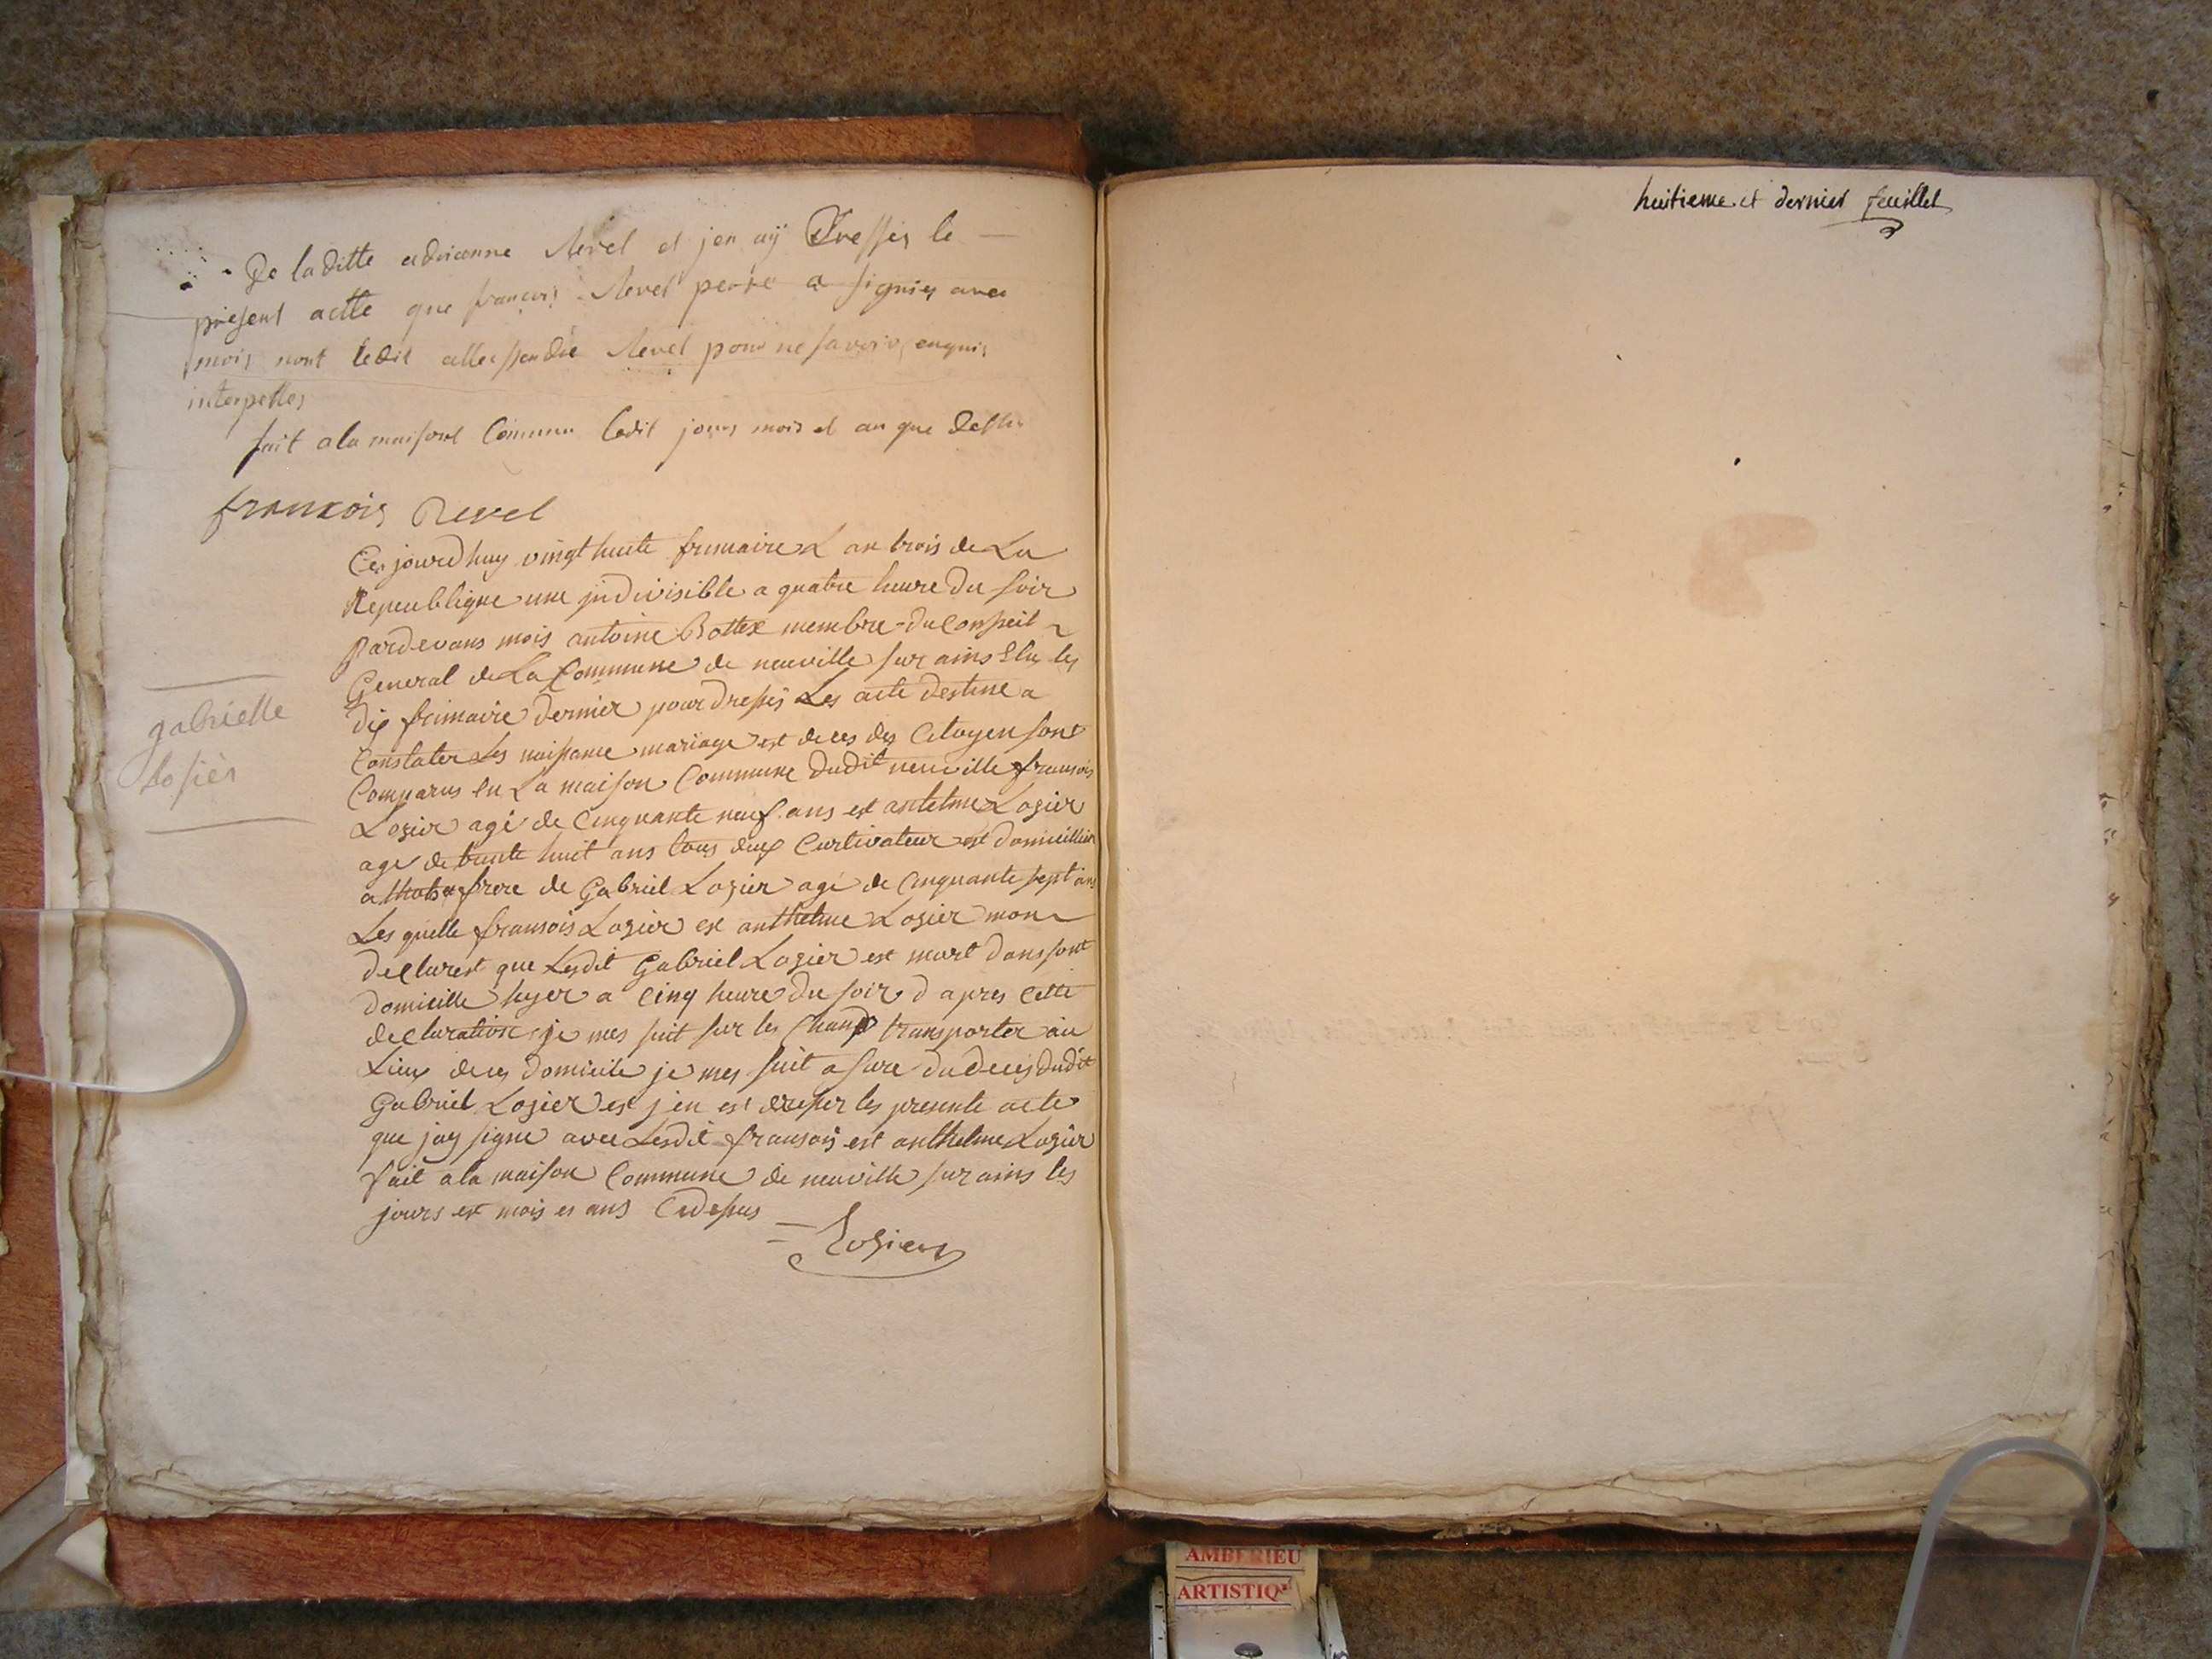 De laditte adrianne Revel et jen aÿ Dresser le —
present actte que francois Revel perre a signier avec
mois nont ledit allexsandre Revel pour ne savoir, enquis
interpelles
fait a la maisont Comunne ledit jours mois et an que dessus
francois Revel
Ces jourdhuy vingt huite frimaire L an trois de La
Republique une jndivisible a quatre heure du soir
Pardevans mois antoine Bottex membre du Conseil
General de La Commune de neuville sur ains Elus les
dix frimaire dernier pour dresses Les acte destine a
Constater Les naissance mariage est deces des Citoyen sont
Comparus en La maison Commune dudit neuville fransois
Losier agé de Cinquante neuf ans est antelme Losier
age de trante huit ans tous deux Curtivateur est domicillier
a frere de Gabriel Losier agé de Cinquante sept ans
Les quelle fransois Losier est anthelme Losier mon
declarest que Lesdit Gabriel Losier est mort dans sont
domicille hyer a Cinq heure du soir d apres Cette
declaration je mes suit sur les Champ transporter au
Lieux deces domicile je mes suit asure du deces dudit
Gabriel Losier est j en est dresser les presente acte
que jay signe avec Lesdit fransois est anthelme Losier
fait a la maison Commune de neuville sur ains les
jours est mois es ans Cidessus
Losier
gabrielle
losier
huitieme et dernier feuillet
AMBERIEU
ARTISTIQ